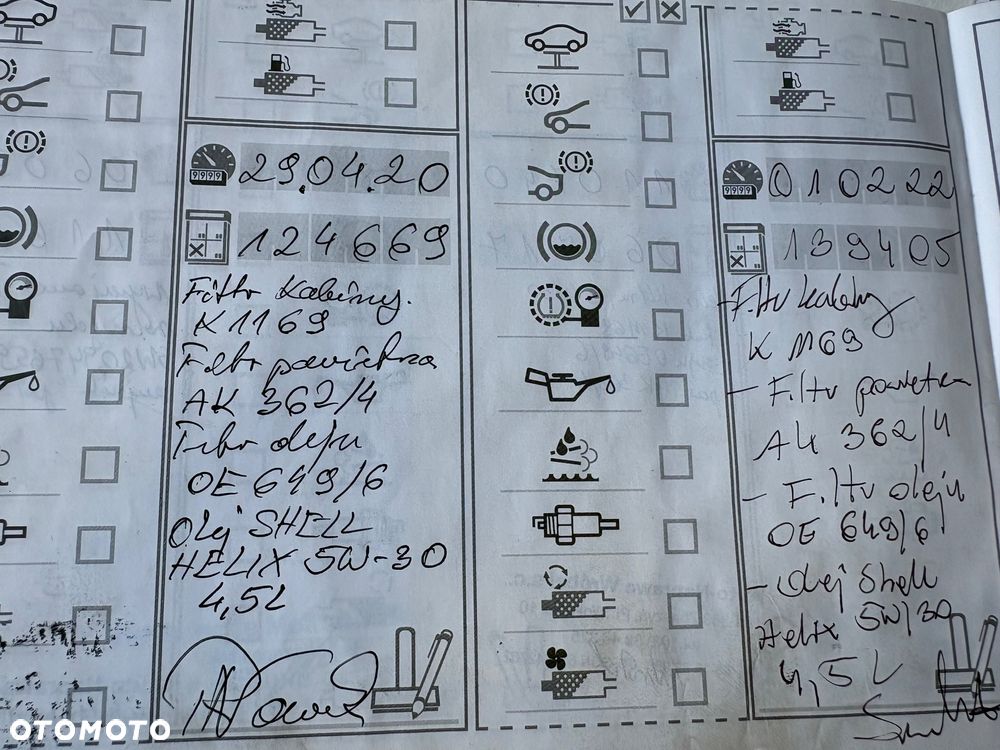 29.04.20
124669
Filtr kabiny.
K1169
Filtr powietrza
AK 362/4
Filtr oleju
OE 649/6
Olej SHELL
HELIX 5W-30
4,5L
010222
139405
- Filtr kabiny
K 1169
- Filtr powietrza
AK 362/4
- Filtr oleju
OE 649/6
- Olej Shell
Helix 5W/30
4,5L
OTOMOTO